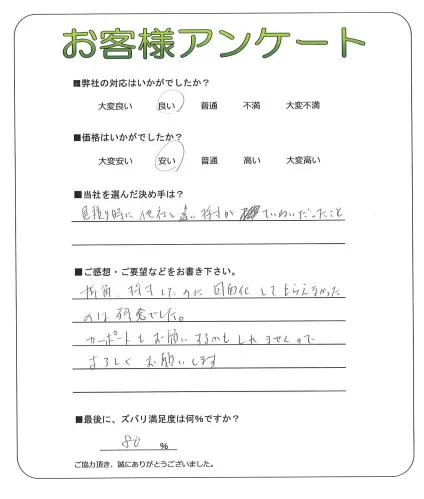 お客様アンケート
■弊社の対応はいかがでしたか?
大変良い 良い 普通 不満 大変不満
■価格はいかがでしたか?
大変安い 安い 普通 高い 大変高い
■当社を選んだ決め手は?
見積り時に他社と違い 検討が ていねいだったこと
■ご感想・ご要望などをお書き下さい。
折角、検討したのに図面化してもらえなかった
のは残念でした。
カーポートもお願いするかもしれませんので
よろしくお願いします
■最後に、ズバリ満足度は何%ですか?
80 %
ご協力頂き、誠にありがとうございました。